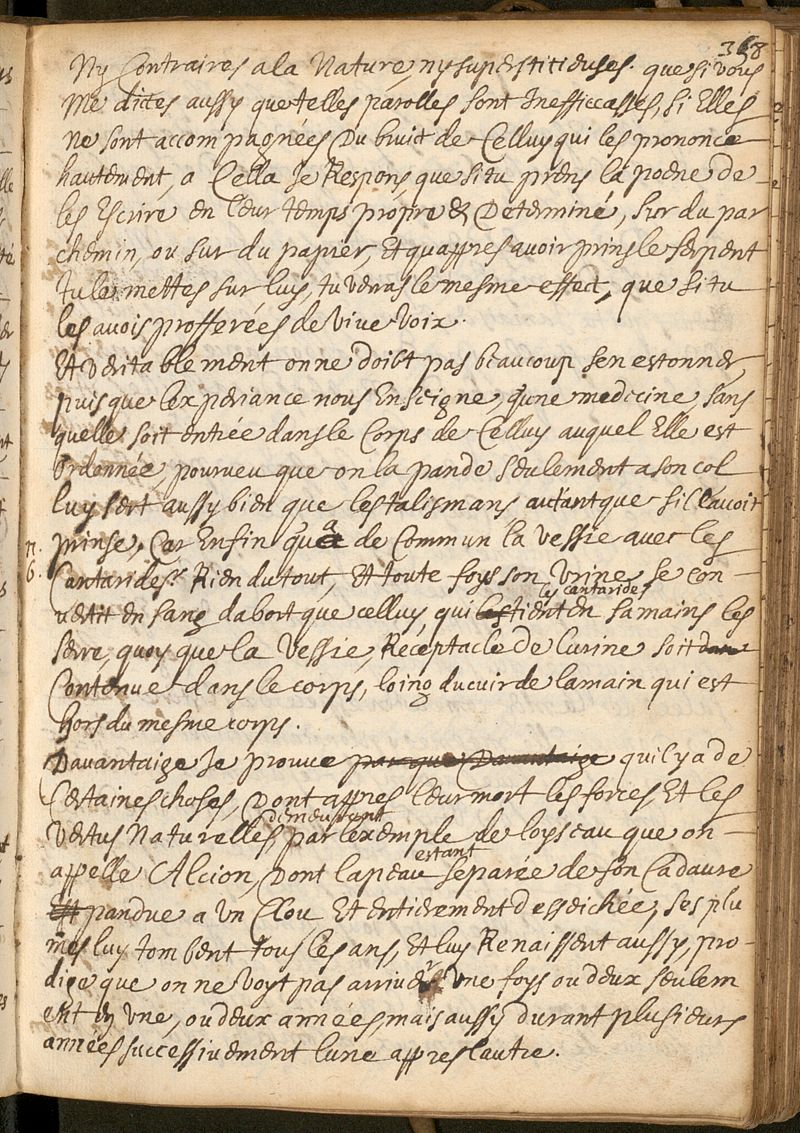 368
Ny Contraires a la Nature, ny superstitieuses. que si vous
Me dictes aussy que telles parolles sont Inefficasses, si Elles
Ne sont accompagnées Du bruit de Celluy qui les prononce
hautement, a Cella Je Respons, que si tu prens la poene de
les Escrire en leur temps propre & Determiné, sur du par
chemin, ou sur du papier, Et qu appres avoir prins le serpent
tu le mettes sur luy, tu verras le mesme effect, que si tu
les avois profferées de vive voix.
Et veritablement on ne doibt pas beaucoup sen estonner,
puis que lexperiance nous Enseigne, qune medecine, sans
quelle soit entrée dans le Corps de Celluy auquel Elle est
Ordonnée, pourveu que on la pande seulement a son col
luy sert aussy bien que les talismans autant que sil lavoit
prinse, Car Enfin qua de Commun la vessie avec les
Cantarides? Rien du tout, Et toute foys son Urine se con-
vertit en sang dabort que celluy, qui les tient en sa mains les
les cantarides
serre, quoy que la Vessie, Receptacle de lurine soit
Contenue dans le corps, loing du cuir de la main qui est
hors du mesme corps.
Davantaige Je prouve par que Davantaige quil y a de
Certaines choses, Dont appres leur mort les forces, Et les
demeurent
vertus Naturelles par lexemple de loyseau que on-
appelle Alcion, Dont la peau separée de son Cadavre
estant
Est pandue a un Clou Et entierement desseichée, ses plu
mes luy tombent tous les ans, Et luy Renaissent aussy, pro-
dige que on ne voyt pas arriver une foys ou deux seulem
ent en une, ou deux années mais aussy durant plusieurs
années successivement lune appres lautre.